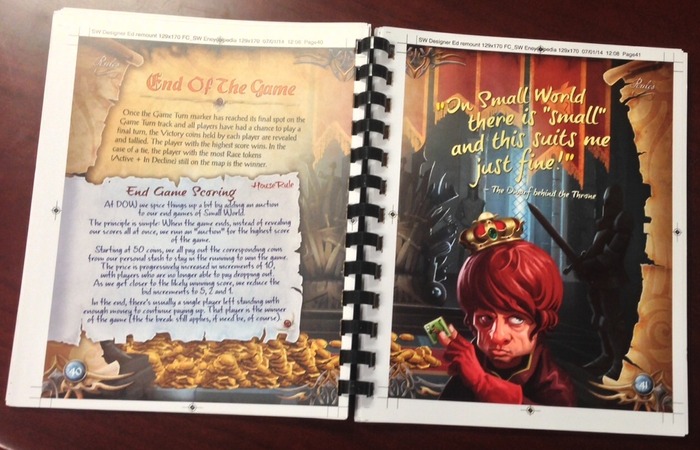 SW Designer Ed remount 129x170 FC_SW Encyclopedia 129x170 07/01/14 12:08 Page40
Rules
End Of The Game
Once the Game Turn marker has reached its final spot on the
Game Turn track and all players have had a chance to play a
final turn, the Victory coins held by each player are revealed
and tallied. The player with the highest score wins. In the
case of a tie, the player with the most Race tokens
(Active + In Decline) still on the map is the winner.
House Rule
End Game Scoring
At DOW we spice things up a bit by adding an auction
to our end games of Small World.
The principle is simple: When the game ends, instead of revealing
our scores all at once, we run an "auction" for the highest score
of the game.
Starting at 50 coins, we all pay out the corresponding coins
from our personal stash to stay in the running to win the game.
The price is progressively increased in increments of 10,
with players who are no longer able to pay dropping out.
As we get closer to the likely winning score, we reduce the
bid increments to 5, 2 and 1.
In the end, there's usually a single player left standing with
enough money to continue paying up. That player is the winner
of the game (the tie break still applies, if need be, of course).
40
SW Designer Ed remount 129x170 FC_SW Encyclopedia 129x170 07/01/14 12:08 Page41
Rules
"On Small World
there is "small"
and this suits me
just fine!"
– The Dwarf behind the Throne
41